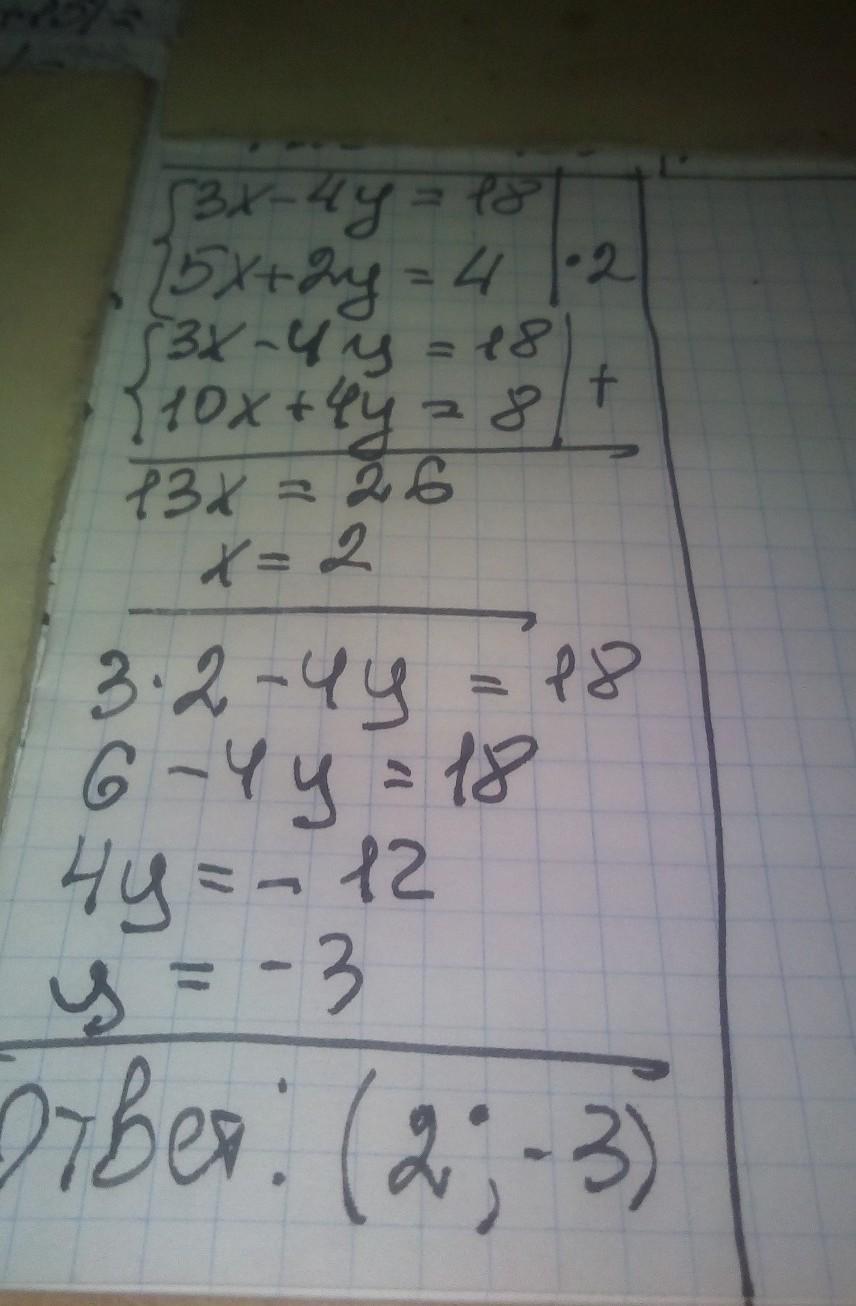 {3x-4y=18|
{5x+2y=4|·2
{3x-4y=18|
{10x+4y=8|+
13x=26
x=2
3·2-4y=18
6-4y=18
4y=-12
y=-3
Ответ: (2;-3)